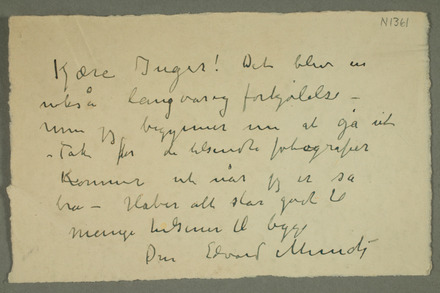 N 1361
Kjære Inger! Det blev en
nokså langvarig forkjølelse –
men jeg begynner nu at gå ut
– Tak for de tilsendte fotografier
Kommer ut når jeg er så
bra – Håber alt står godt til
Mange hilsener til begge
Din Edvard Munch